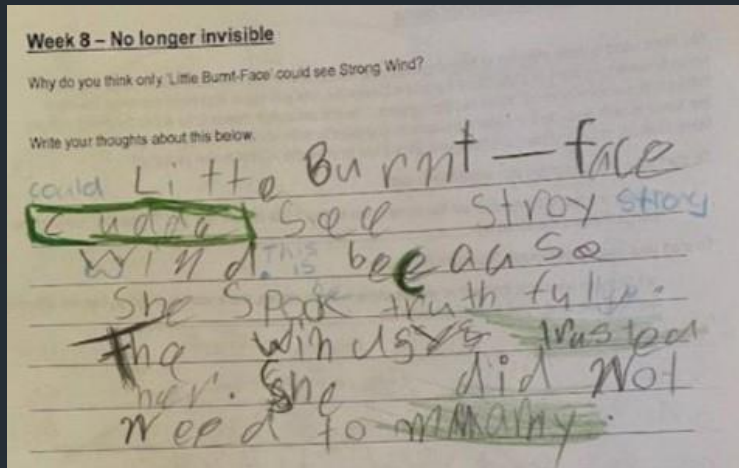 Week 8 – No longer invisible
Why do you think only 'Little Burnt-Face' could see Strong Wind?
Write your thoughts about this below.
could Litte Burnt-face
cudda see stroy strong
wind. This is beecause
She spook truth fuly.
The win trusted
her. She did Not
Need to